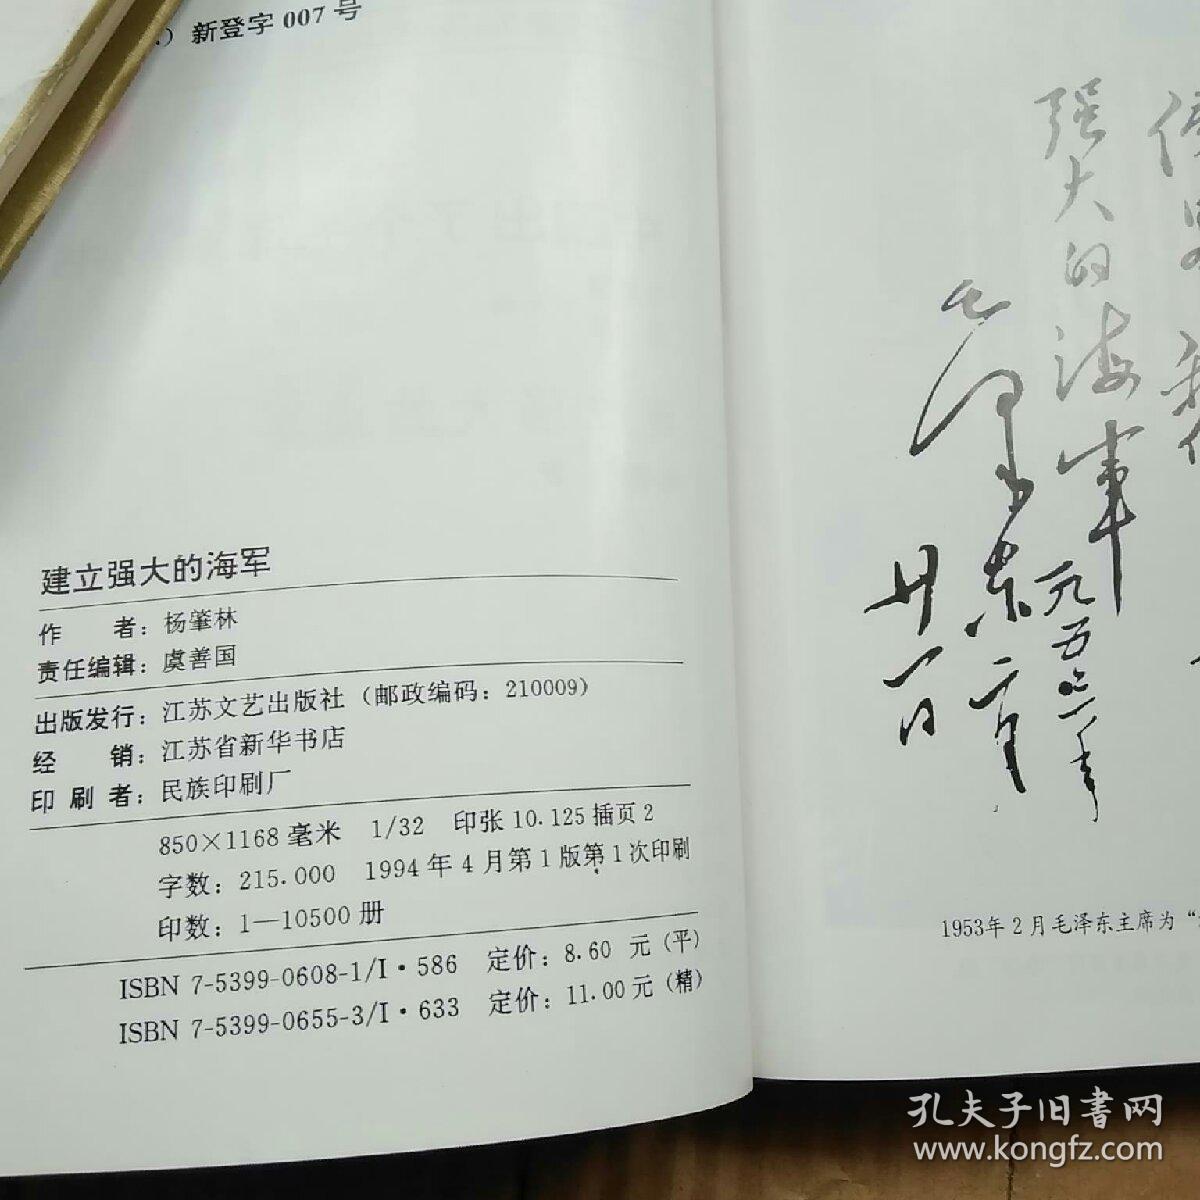 新登字 007 号
建立强大的海军
作 者：杨肇林
责任编辑：虞善国
出版发行：江苏文艺出版社（邮政编码：210009）
经 销：江苏省新华书店
印 刷 者：民族印刷厂
850×1168 毫米 1/32 印张 10.125 插页 2
字数：215.000 1994 年 4 月第 1 版第 1 次印刷
印数：1—10500 册
ISBN 7-5399-0608-1/I·586 定价：8.60 元（平）
ISBN 7-5399-0655-3/I·633 定价：11.00 元（精）
强大的海军
毛泽东
1953年 2 月毛泽东主席为“
孔夫子旧书网
www.kongfz.com